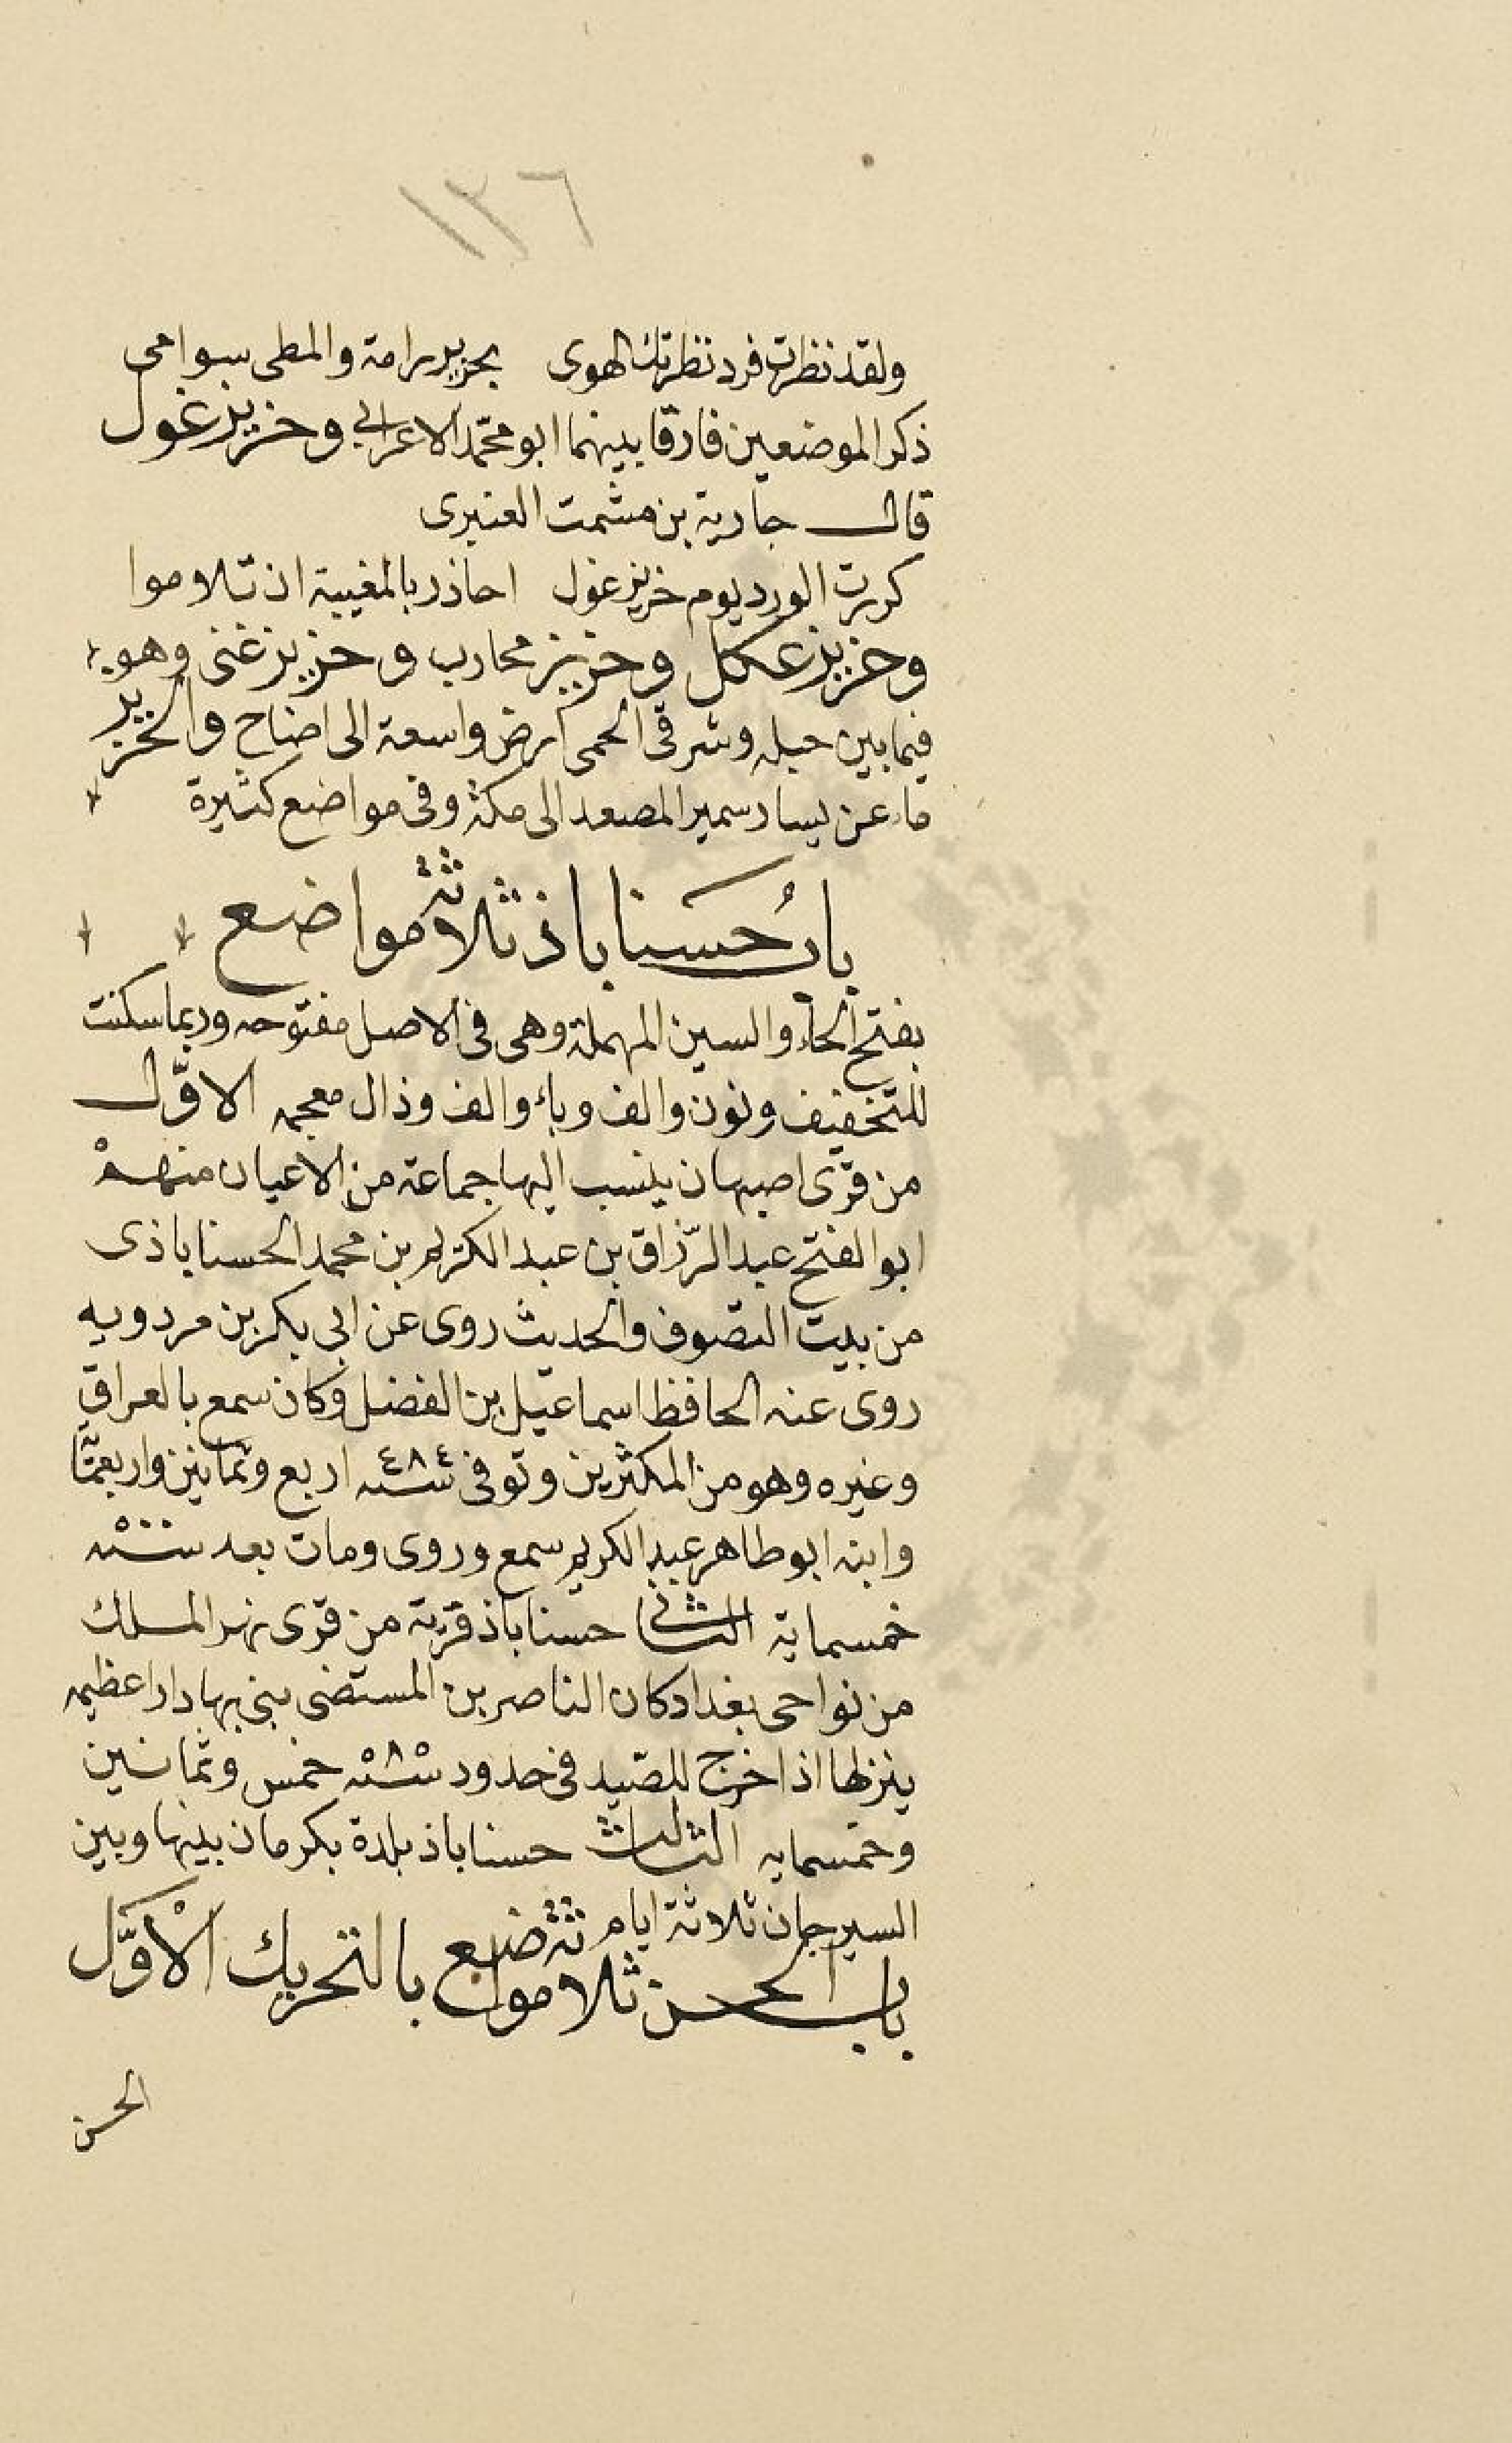 ١٣٦
ولقد نظرت فرد نظرتك الهوى بحزيز رامة والمطى سوامى
ذكر الموضعين فارقا بينهما ابو محمّد الاعرابي وحزيز غول
قال جارية بن مشمت العنبرى
كررت الورد يوم حزيز غول احاذر بالمغيبة ان تلاموا
وحزيز عكل وحزيز محارب وحزيز غنى وهو
فيما بين جبله وشرقى الحمى ارض واسعة الى اضاح والحزيز
ماء عن يسار سمير المصعد الى مكة وفى مواضع كثيرة
بابُ حَسناباذ ثلاثة مواضع
بفتح الحاء والسين المهملة وهى فى الاصل مفتوحه وربما سكنت
للتخفيف ونون والف وباء والف وذال معجمه الاوّل
من قرى اصبهان ينسب اليها جماعة من الاعيان منهم
ابو الفتح عبد الرّزاق بن عبد الكريم بن محمد الحسناباذى
من بيت التصّوف والحديث روى عن ابى بكر بن مردويه
روى عنه الحافظ اسماعيل بن الفضل وكان سمع بالعراق
وغيره وهو من المكثرين وتوفى سنه ٤٨٤ اربع وثمانين واربعمّا
وابنه ابو طاهر عبد الكريم سمع وروى ومات بعد سنه ٥٠٠
خمسماية الثانى حسناباذ قرية من قرى نهر الملك
من نواحى بغداد كان الناصر بن المستضى بنى بها دارا عظيمه
ينزلها اذا خرج للصّيد فى حدود سنه ٥٨٥ خمس وثمانين
وخمسمايه الثالث حسناباذ بلدة بكرمان بينها وبين
السيرجان ثلاثة ايام
باب الحسن ثلاثة مواضع بالتحريك الْاوّل
الحسن